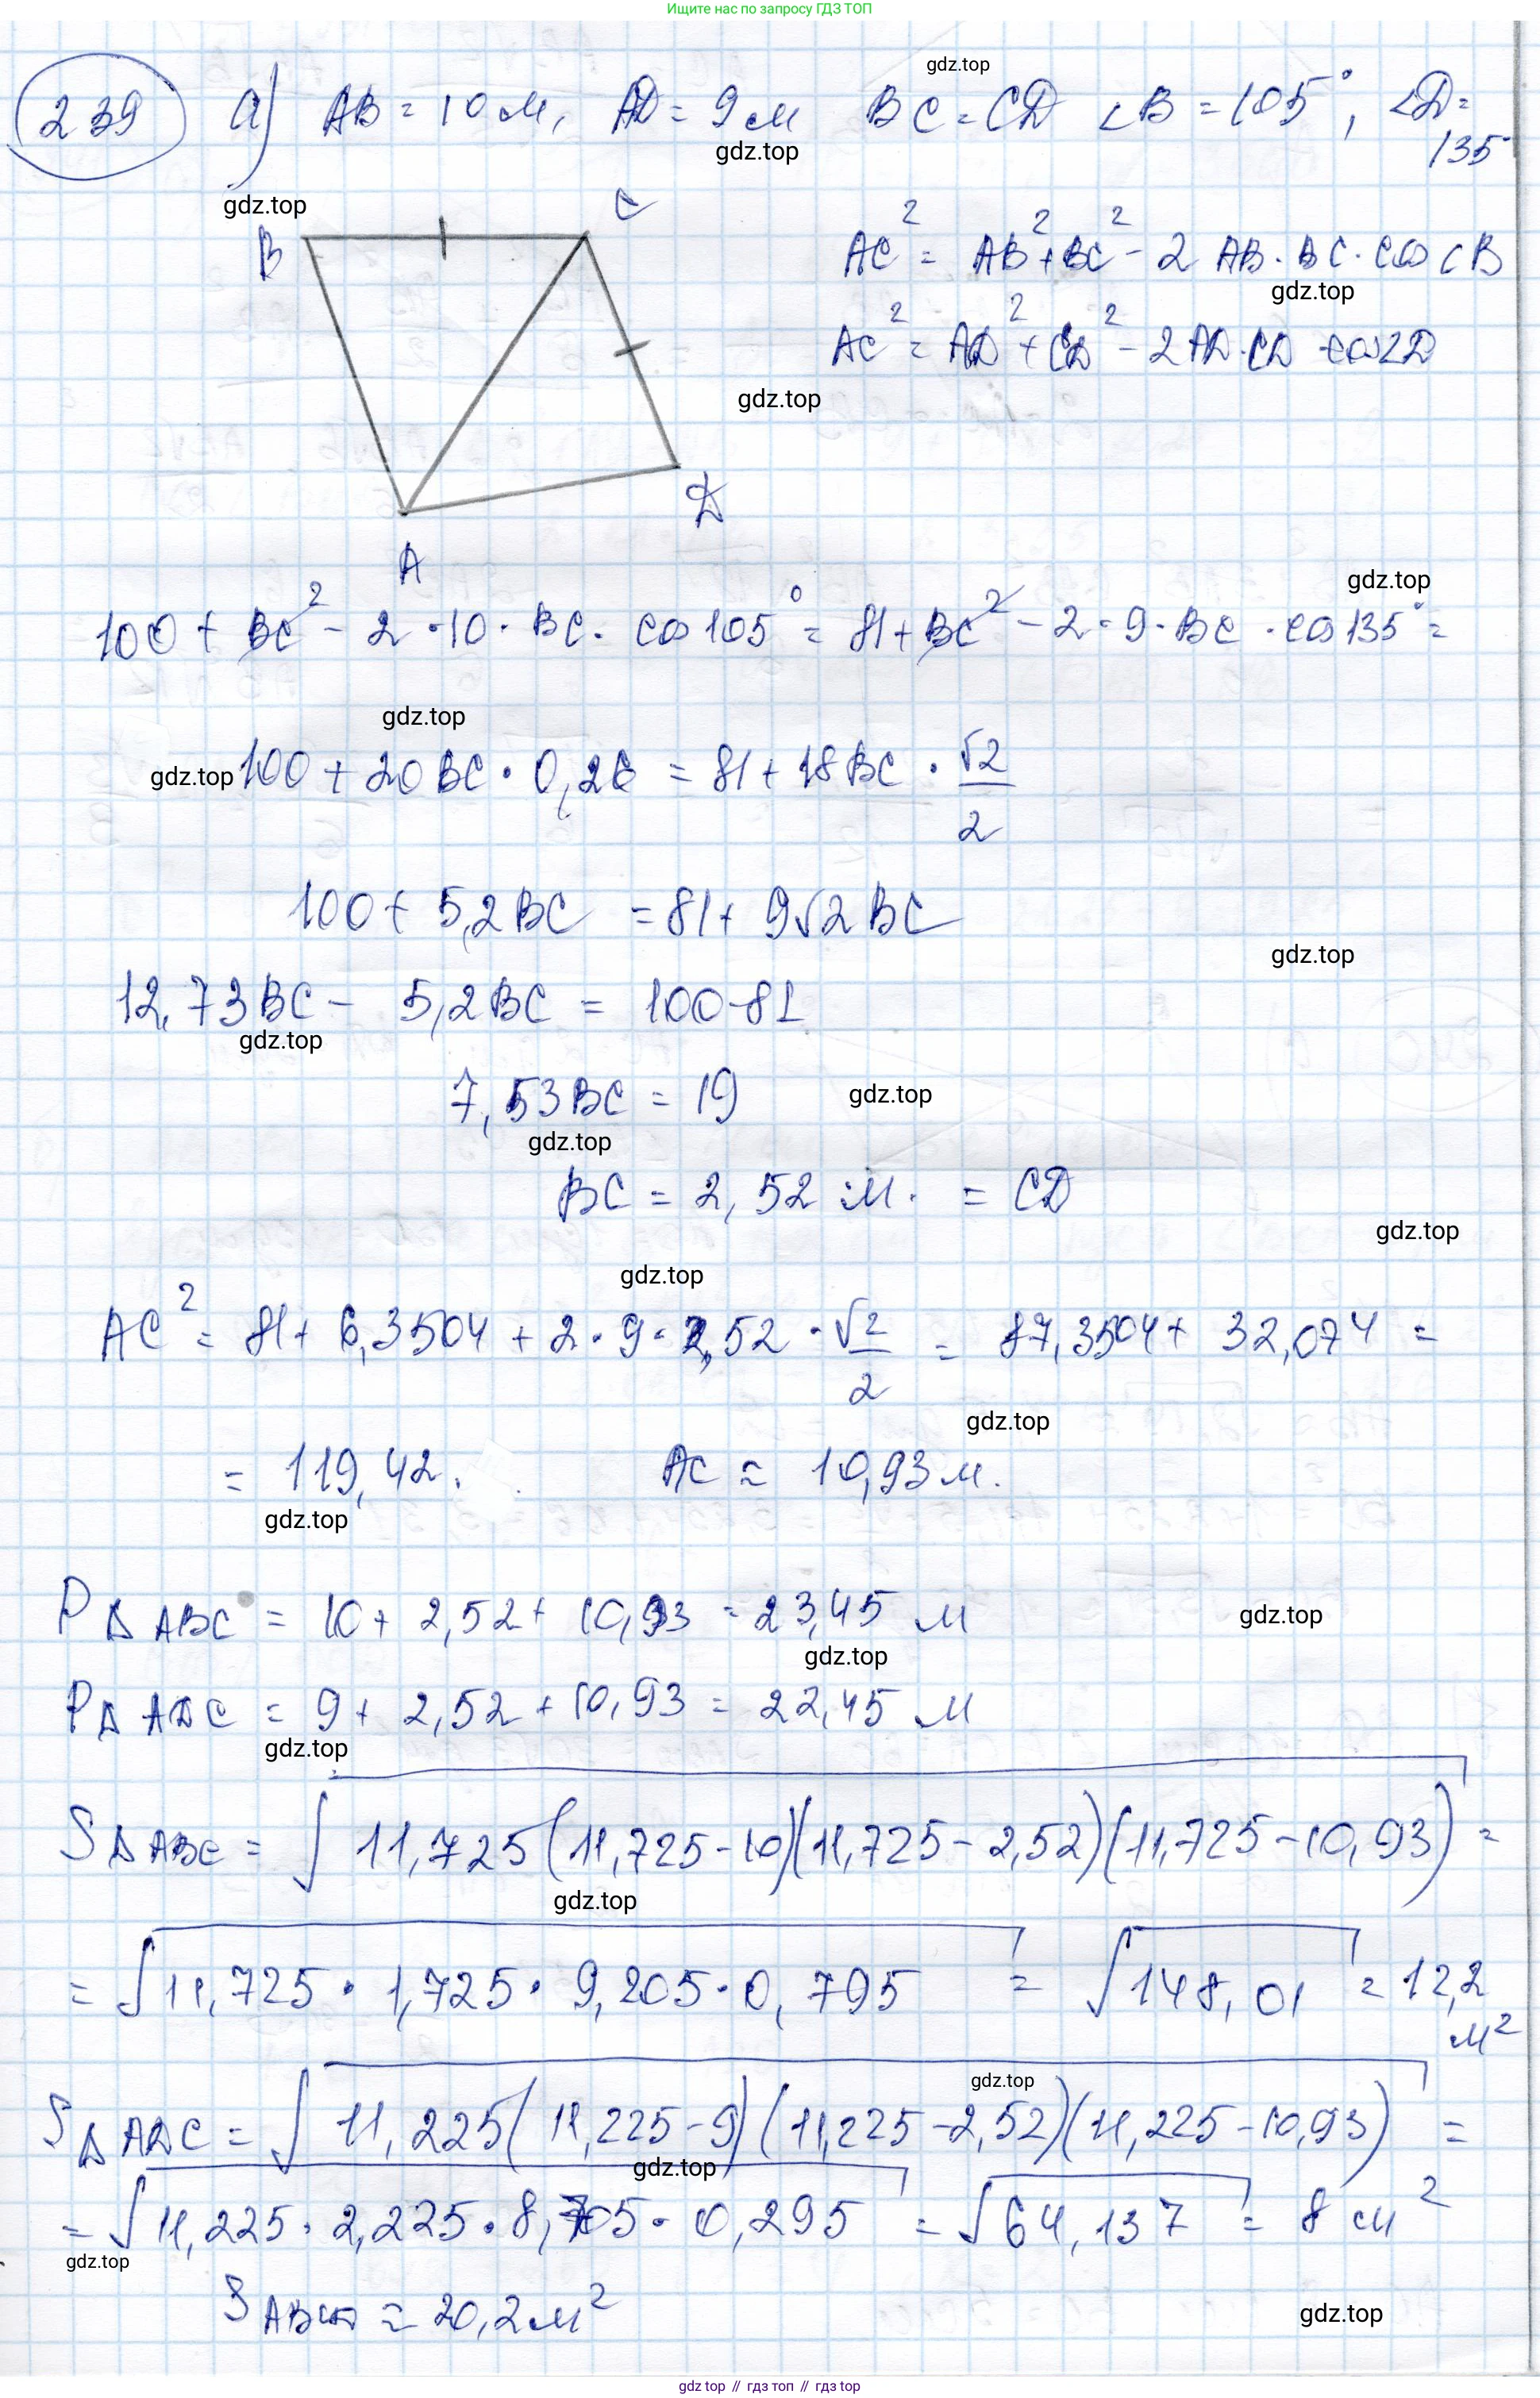 Ищите нас по запросу ГДЗ ТОП
239 а) AB = 10 м, AD = 9 м BC = CD ∠B = 105°, ∠D = 135°
gdz.top
gdz.top
gdz.top
B C
AC² = AB² + BC² - 2 AB · BC · cos ∠B
gdz.top
AC² = AD² + CD² - 2 AD · CD · cos ∠D
gdz.top
D
A
gdz.top
100 + BC² - 2 · 10 · BC · cos 105° = 81 + BC² - 2 · 9 · BC · cos 135° =
gdz.top
gdz.top 100 + 20 BC · 0,26 = 81 + 18 BC · √2/2
100 + 5,2 BC = 81 + 9√2 BC
gdz.top
12,73 BC - 5,2 BC = 100 - 81
gdz.top
7,53 BC = 19
gdz.top
gdz.top
BC = 2,52 м. = CD
gdz.top
gdz.top
AC² = 81 + 6,3504 + 2 · 9 · 2,52 · √2/2 = 87,3504 + 32,074 =
gdz.top
= 119,42. AC ≈ 10,93 м.
gdz.top
P Δ ABC = 10 + 2,52 + 10,93 = 23,45 м
gdz.top
gdz.top
P Δ ADC = 9 + 2,52 + 10,93 = 22,45 м
gdz.top
S Δ ABC = √11,725(11,725 - 10)(11,725 - 2,52)(11,725 - 10,93) =
gdz.top
= √11,725 · 1,725 · 9,205 · 0,795 = √148,01 = 12,2 м²
gdz.top
S Δ ADC = √11,225(11,225 - 9)(11,225 - 2,52)(11,225 - 10,93) =
gdz.top
= √11,225 · 2,225 · 8,705 · 0,295 = √64,137 = 8 см²
gdz.top
S ABCD ≈ 20,2 м²
gdz.top
gdz top // гдз топ // gdz top